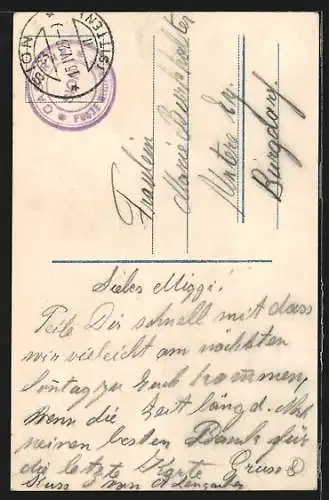 SION
(SITTEN)
15.IV.22
POSTE
Fräulein
Marie
Untere Ey.
Burgdorf.
Liebes Miggi!
Teile Dir schnell mit dass
wir vieleicht am nächsten
Sonntag zu Euch kommen,
Wenn die Zeit längd.
meinen besten Dank für
die letzte Karte Gruss &
Kuss von